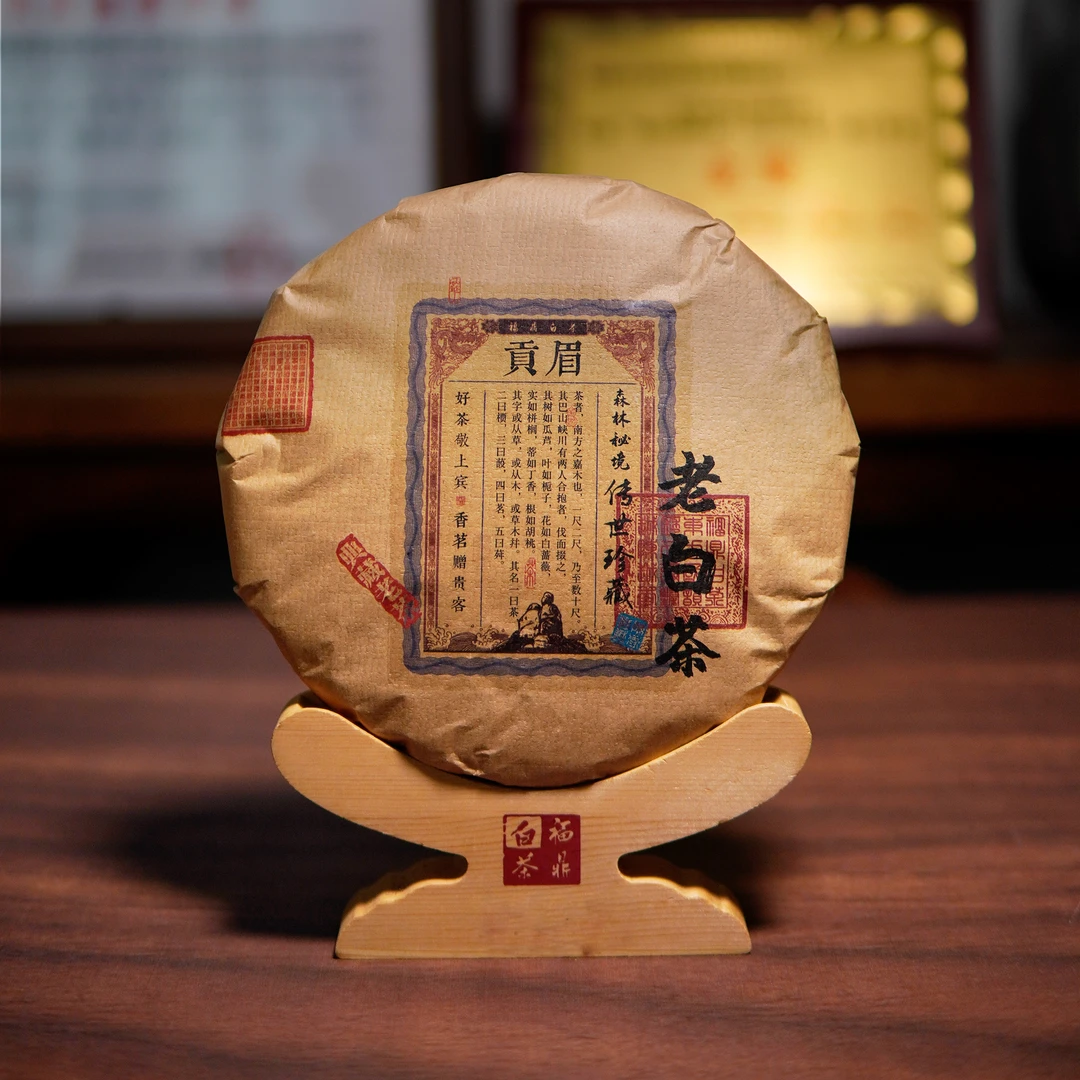 福鼎白茶
貢眉
老白茶
森林秘境 传世珍藏
茶者,南方之嘉木也,一尺二尺,乃至数十尺、
其巴山峡川有两人合抱者,伐面掇之,
其树如瓜芦,叶如栀子,花如白蔷薇、
实如栟榈,蒂如丁香,根如胡桃。
其字或从草,或从木,或草木并。其名一曰茶
二曰槚,三曰蔎,四曰茗,五曰荈。
好茶敬上宾 香茗赠贵客
福鼎
白茶